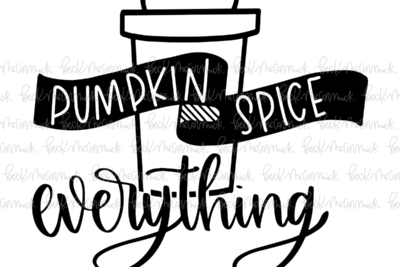 PUMPKIN SPICE
everything